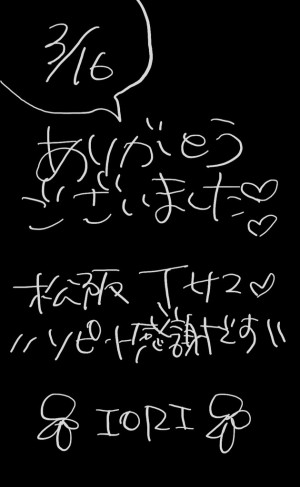 3/16
ありがとう
ございました♡♡
松阪 Tサマ♡
〃リピート感謝です〃
IORI